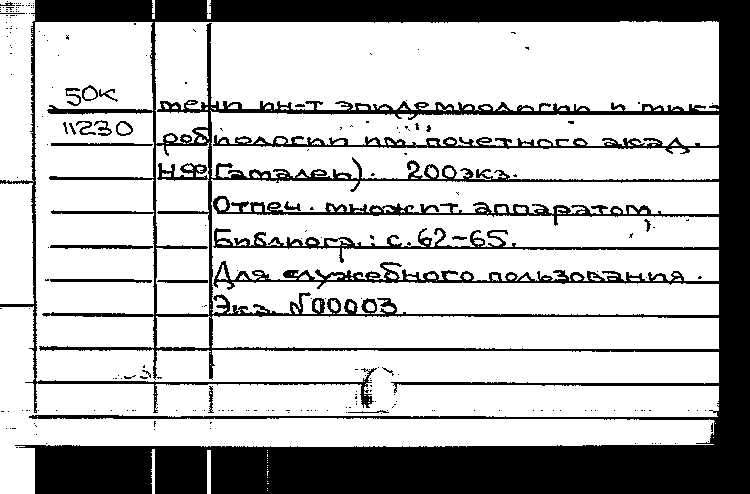 50К мени ин-т эпидемиологии и мик-
11230 робиологии им. почетного акад.
НФ Гамалеи). 200экз.
Отпеч. множит. аппаратом.
Библиогр.: с. 62-65.
Для служебного пользования.
Экз. №00003.